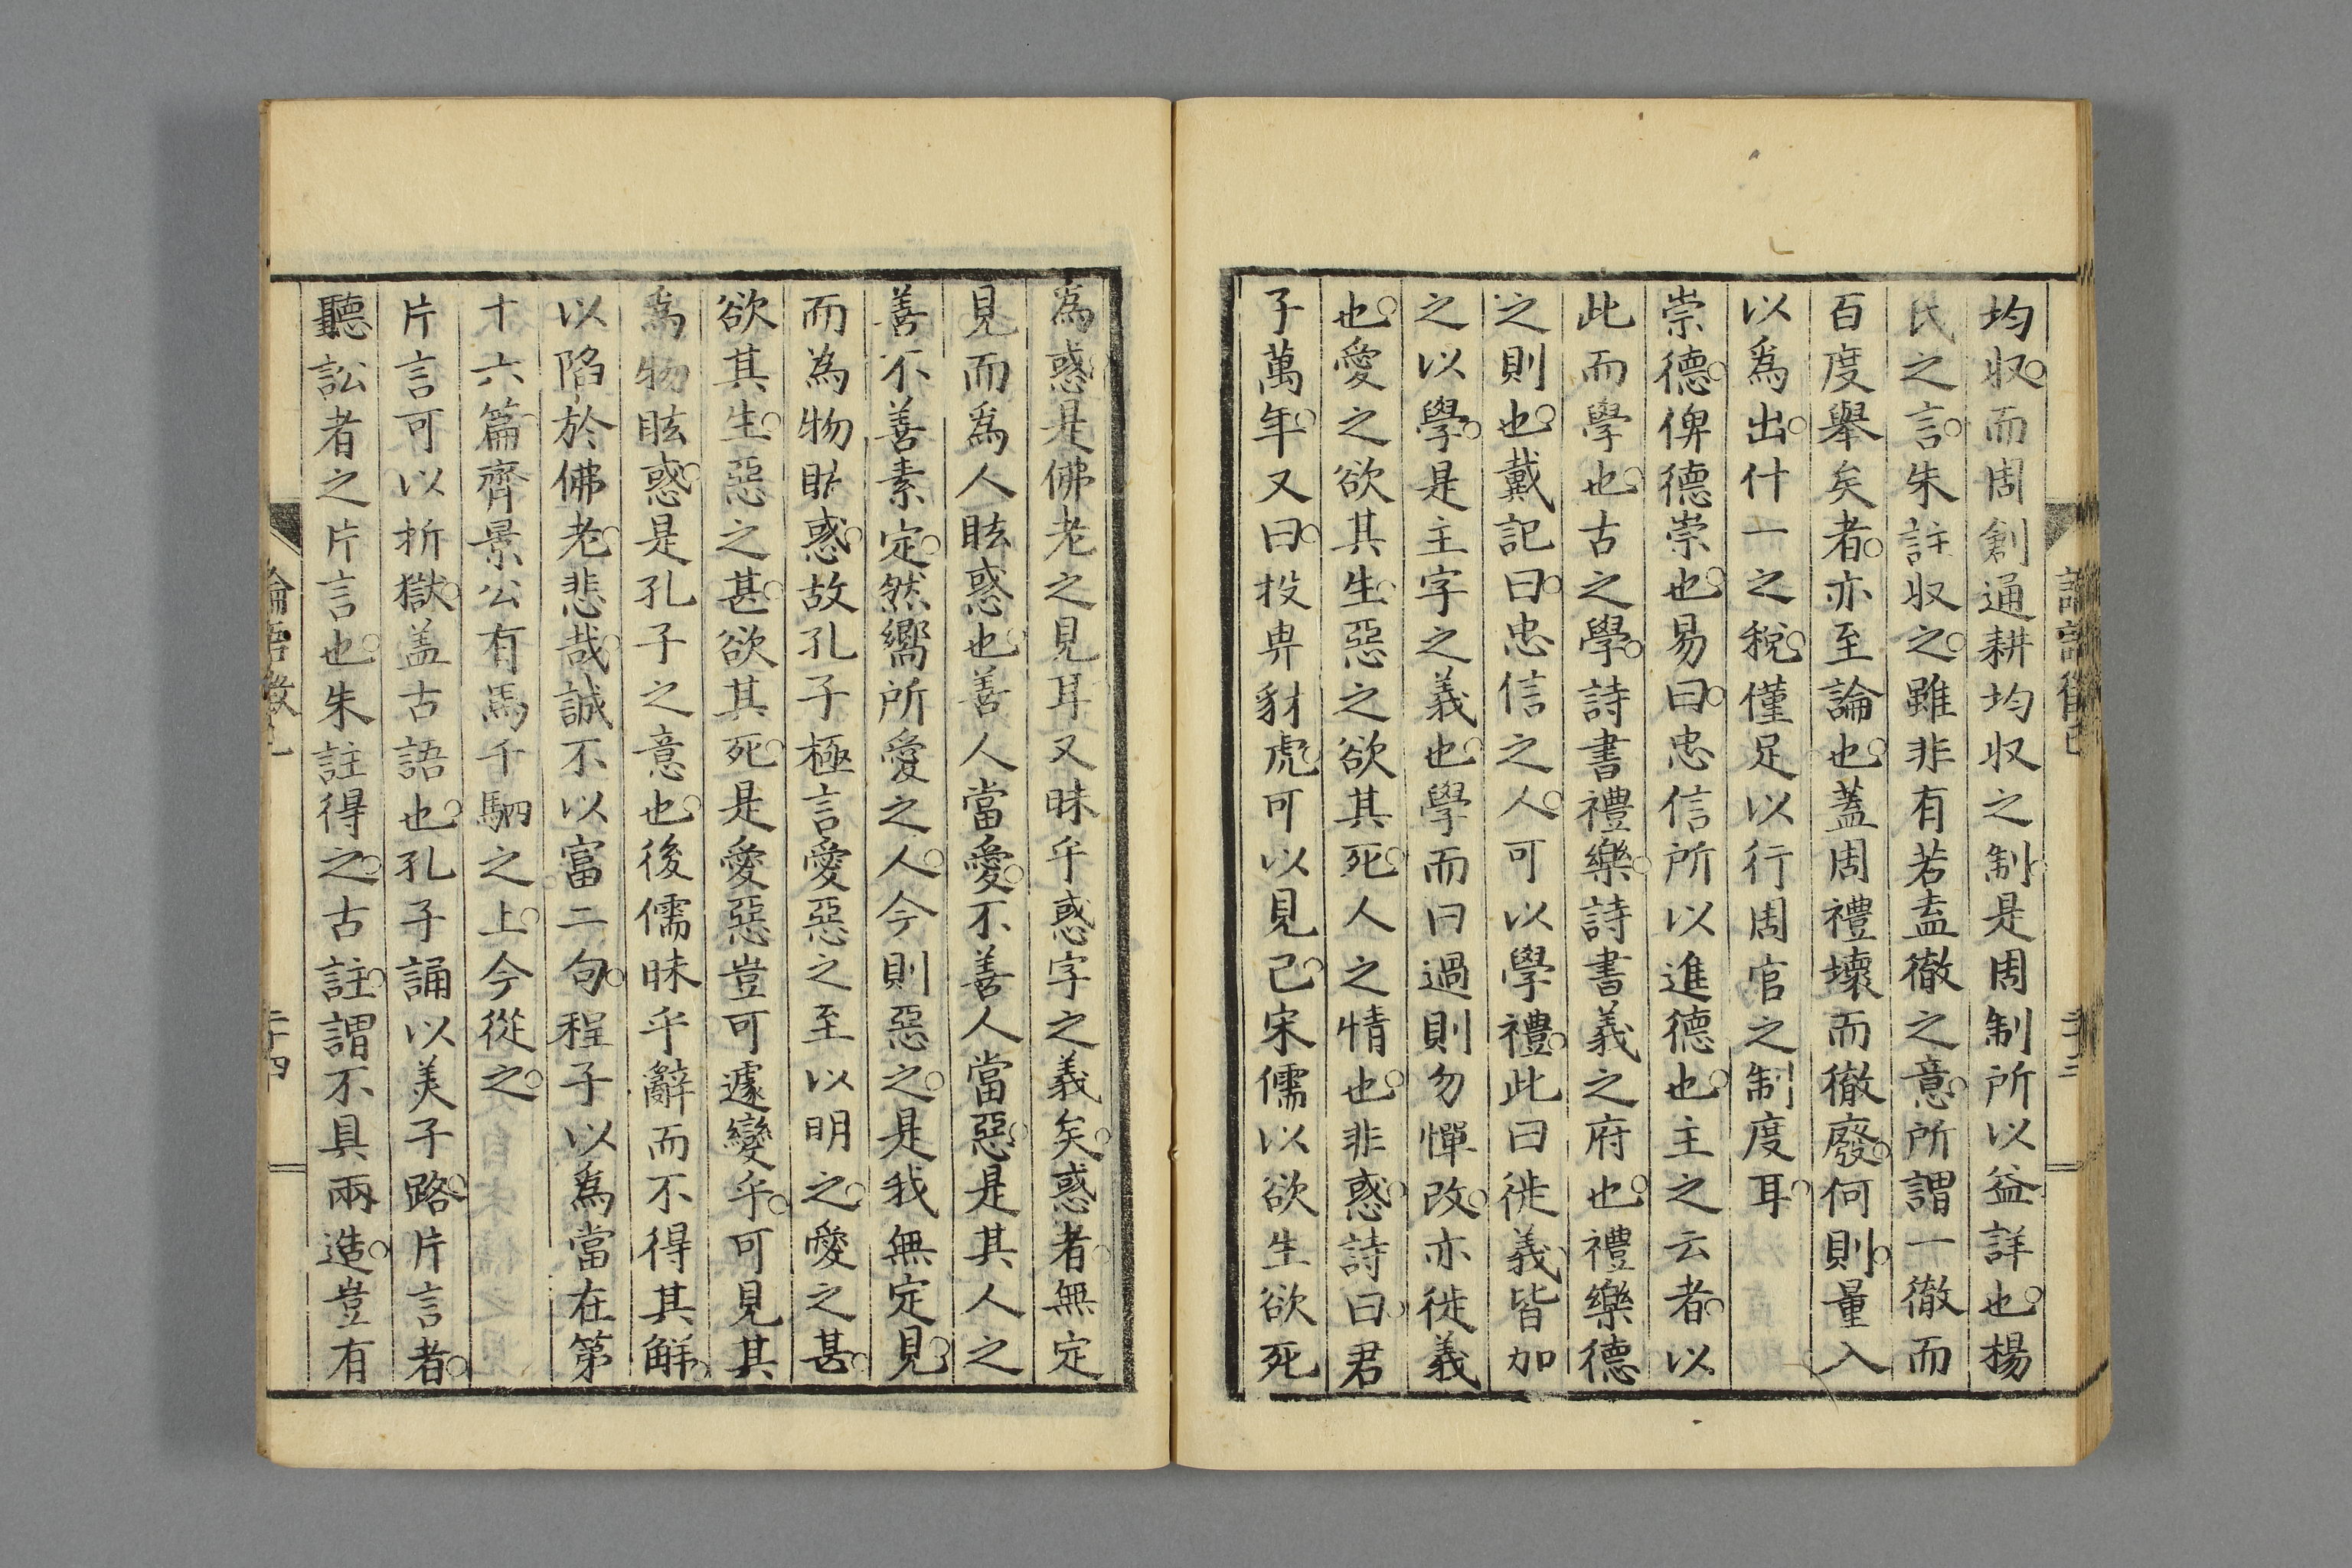 均収而周創通耕均収之制是周制所以益詳也楊
氏之言朱註収之雖非有若盍徹之意所謂一徹而
百度舉矣者亦至論也蓋周禮壞而徹廢何則量入
以爲出什一之稅僅足以行周官之制度耳
崇德俾德崇也易曰忠信所以進德也主之云者以
此而學也古之學詩書禮樂詩書義之府也禮樂德
之則也戴記曰忠信之人可以學禮此曰徙義皆加
之以學是主字之義也學而曰過則勿憚改亦徙義
也愛之欲其生惡之欲其死人之情也非惑詩曰君
子萬年又曰投畀豺虎可以見已宋儒以欲生欲死
為惑是佛老之見耳又昧乎惑字之義矣惑者無定
見而爲人眩惑也善人當愛不善人當惡是其人之
善不善素定然嚮所愛之人今則惡之是我無定見
而為物眩惑故孔子極言愛惡之至以明之愛之甚
欲其生惡之甚欲其死是愛惡豈可遽變乎可見其
爲物眩惑是孔子之意也後儒昧乎辭而不得其解
以陷於佛老悲哉誠不以富二句程子以爲當在第
十六篇齊景公有馬千駟之上今從之
片言可以折獄盖古語也孔子誦以美子路片言者
聽訟者之片言也朱註得之古註謂不具兩造豈有
論語徵己
二十四